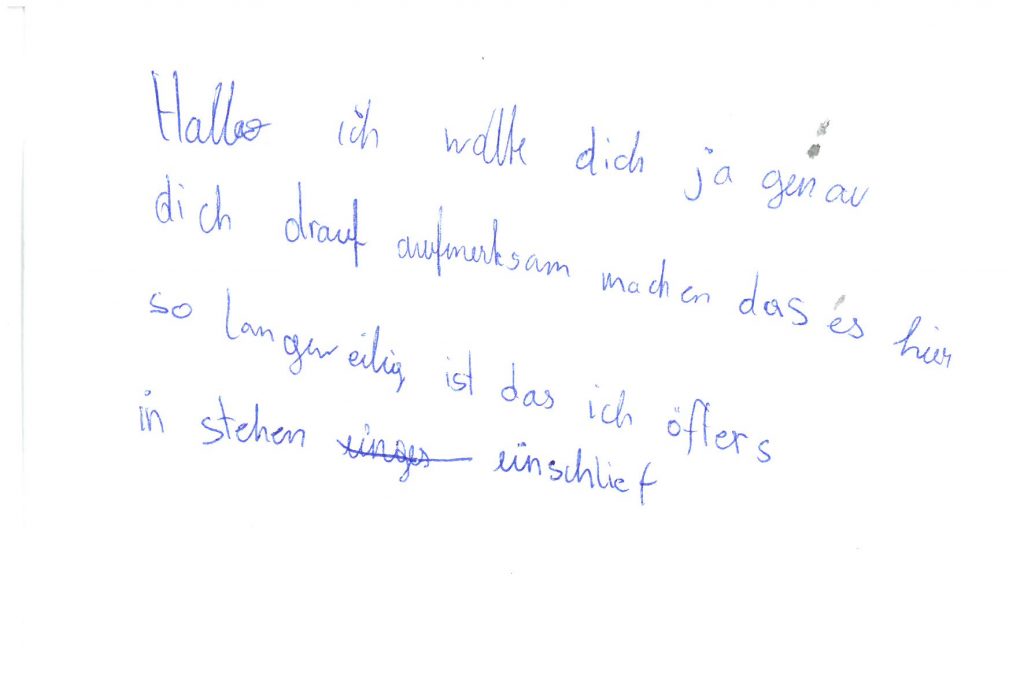 Hallo ich wollte dich ja genau
dich drauf aufmerksam machen das es hier
so langerweilig ist das ich öffters
in stehen einges einschlief